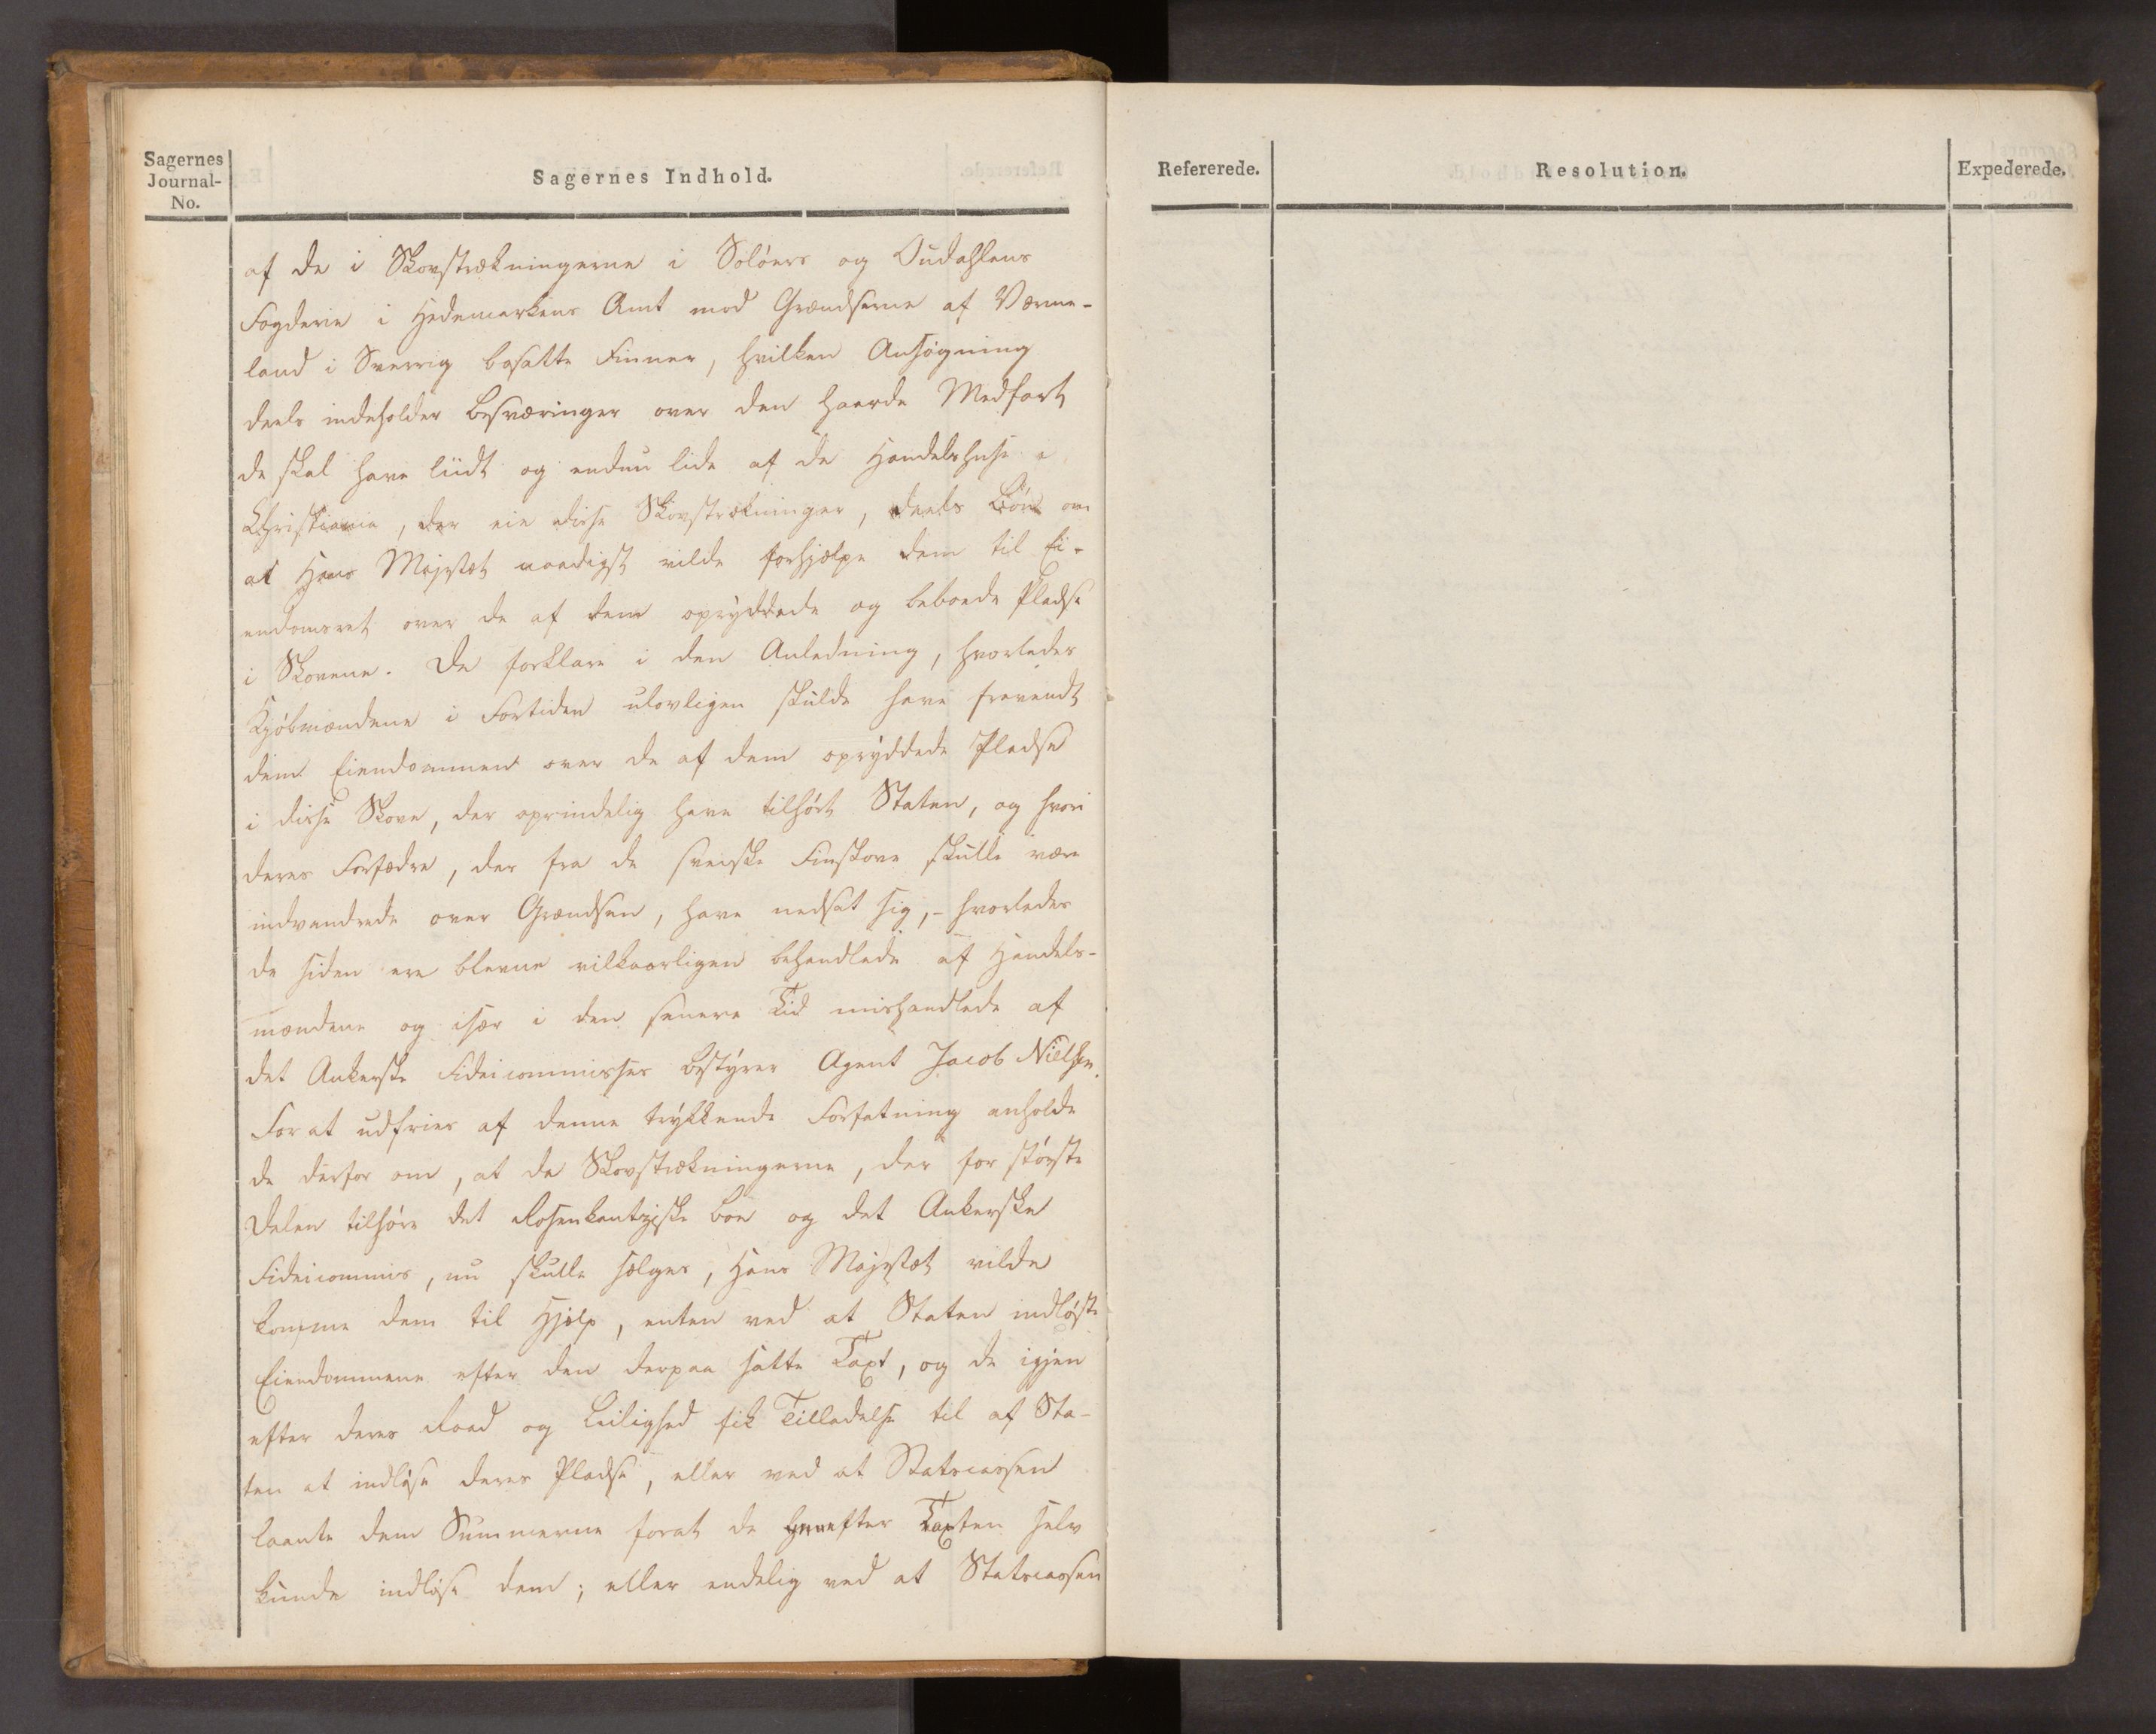 Sagernes
Journal-
No.
Sagernes Indhold.
af de i Skovstrækningerne i Soløers og Oudahlens
Fogderie i Hedemarkens Amt mod Grændserne af Værme-
land i Sverrig bosatte Finner, hvilken Ansøgning
deels indeholder Besværinger over den haarde Medfart
de skal have liidt og endnu lide af de Handelshuse i
Christiania, der eie disse Skovstrækninger, deels Bøn om
at Hans Majestæt naadigst vilde forhjælpe dem til Ei-
endomsret over de af dem opryddede og beboede Pladse
i Skovene. De forklare i den Anledning, hvorledes
Kjøbmændene i Fortiden ulovligen skulde have fravendt
dem Eiendommen over de af dem opryddede Pladse
i disse Skove, der oprindelig have tilhørt Staten, og hvori
deres Forfædre, der fra de svenske Finskove skulle være
indvandrede over Grændsen, have nedsat sig, - hvorledes
de siden ere blevne vilkaarligen behandlede af Handels-
mændene og især i den senere Tid mishandlede af
det Ankerske Fideicommisses Bestyrer Agent Jacob Nielsen.
For at udfries af denne trykkende Forfatning anholde
de derfor om, at da Skovstrækningerne, der for største
Delen tilhøre det Rosenkantziske Boe og det Ankerske
Fideicommis, nu skulle sælges, Hans Majestæt vilde
komme dem til Hjelp, enten ved at Staten indløste
Eiendommene efter den derpaa satte Taxt, og de igjen
efter deres Raad og Leilighed fik Tilladelse til af Sta-
ten at indløse deres Pladse, eller ved at Statscassen
laante dem Summerne forat de efter Taxten selv
kunde indløse dem; eller endelig ved at Statscassen
Refererede.
Resolution.
Expederede.